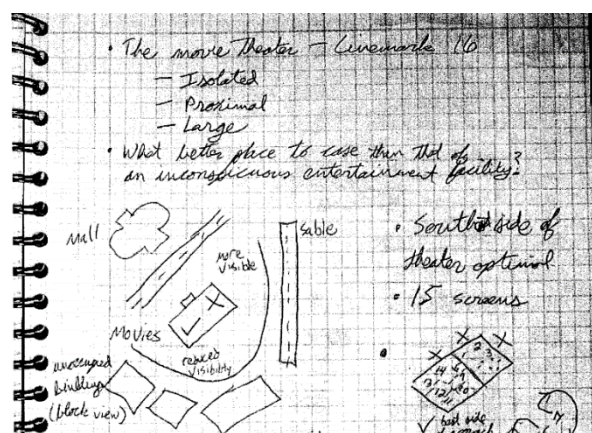 • The movie theater – Cinemark 16
– Isolated
– Proximal
– Large
• What better place to case than that of
an inconspicuous entertainment facility?
Mall
Sable
more
visible
X
✓
Movies
reduced
visibility
unoccupied
buildings
(block view)
• South side of
theater optimal
• 15 screens
X X
2 3
14
13 12
10
✓ best side
7